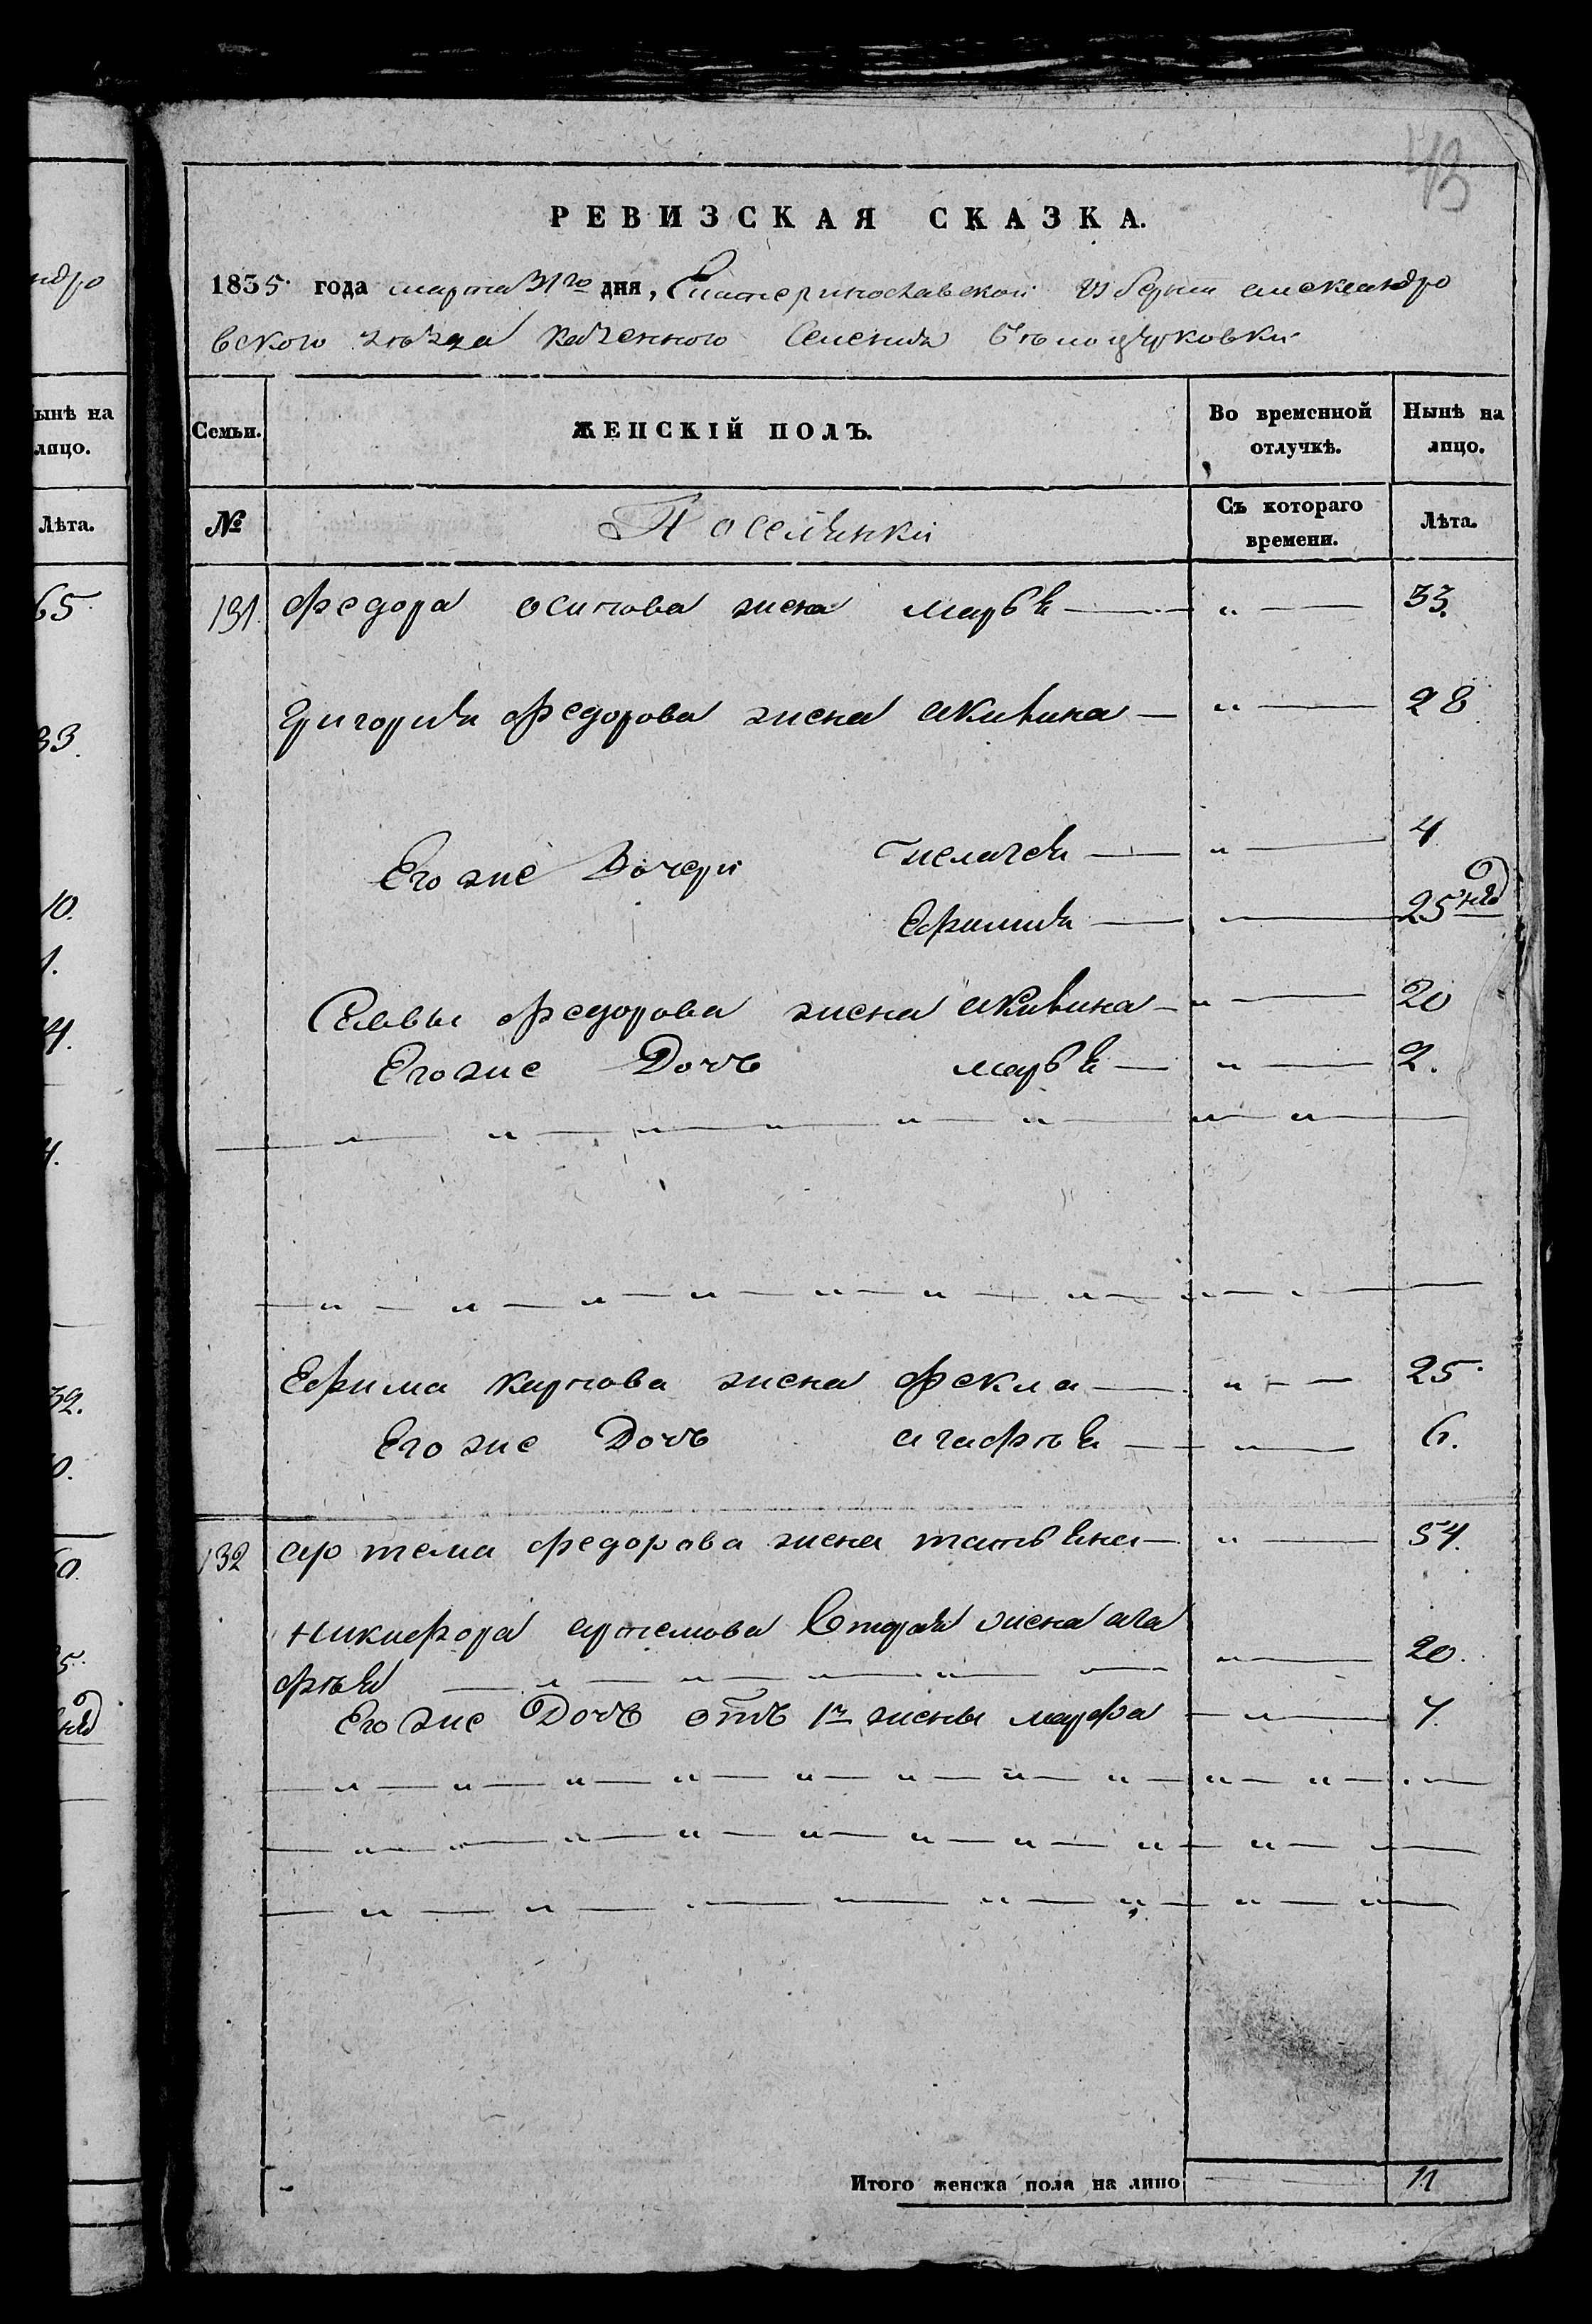 43
РЕВИЗСКАЯ СКАЗКА.
1835 года марта 31го дня, Екатеринославской губернии александро
вского уѣзда казенного Селения Бѣлоцерковки
Семьи. ЖЕНСКІЙ ПОЛЪ. Во временной отлучкѣ. Нынѣ на лицо.
№ Поселянки Съ котораго времени. Лѣта.
131. Федора осипова жена марья — „ — 33.
григория Федорова жена акилина — „ — 28
Его же Дочери
пелагея — „ — 4
Ефимия — — 25 нед
Саввы Федорова жена акилина — „ — 20
Его же Дочь марья — „ — 2.
Ефима карпова жена Фекла — „ — 25.
Его же Дочь агафья — „ — 6.
132 артема федорова жена татьяна — „ — 54.
никифора артемова вторая жена ага
фья — „ — 20.
Его же Дочь отъ 1й жены марфа — „ — 7.
Итого женска пола на лицо — 11
ндро
Нынѣ на
лицо.
Лѣта.
65
33.
10.
1.
4.
4.
32.
0.
60.
5.
нед